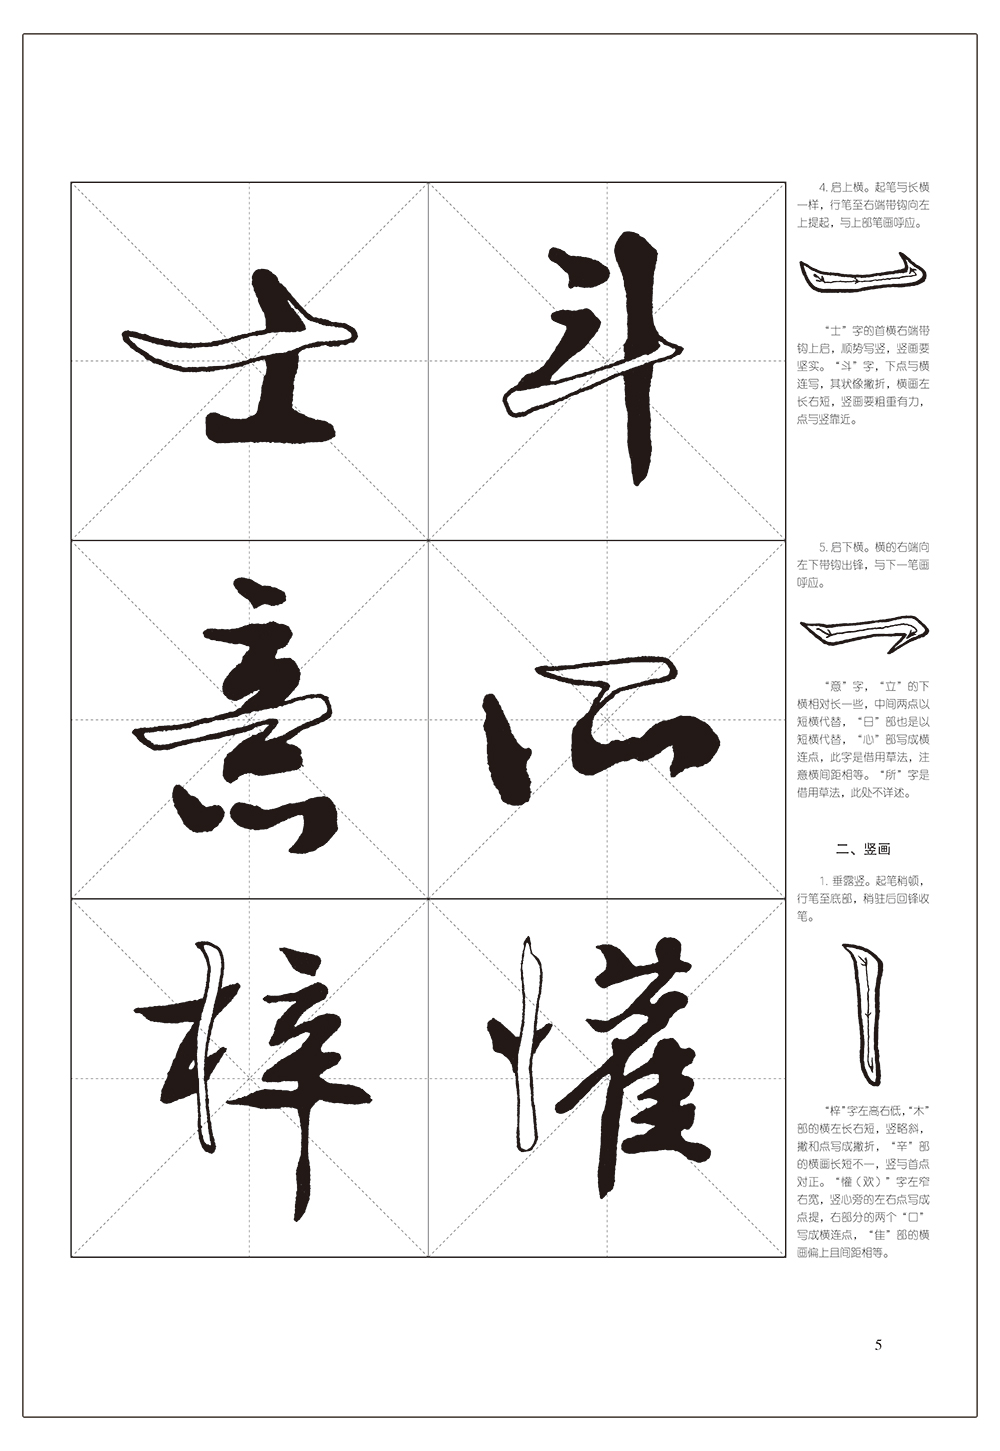 士斗
4.启上横。起笔与长横
一样，行笔至右端带钩向左
上提起，与上部笔画呼应。
“士”字的首横右端带
钩上启，顺势写竖，竖画要
坚实。“斗”字，下点与横
连写，其状像撇折，横画左
长右短，竖画要粗重有力，
点与竖靠近。
意所
5.启下横。横的右端向
左下带钩出锋，与下一笔画
呼应。
“意”字，“立”的下
横相对长一些，中间两点以
短横代替，“日”部也是以
短横代替，“心”部写成横
连点，此字是借用草法，注
意横间距相等。“所”字是
借用草法，此处不详述。
二、竖画
梓懽
1.垂露竖。起笔稍顿，
行笔至底部，稍驻后回锋收
笔。
“梓”字左高右低，“木”
部的横左长右短，竖略斜，
撇和点写成撇折，“辛”部
的横画长短不一，竖与首点
对正。“懽（欢）”字左窄
右宽，竖心旁的左右点写成
点提，右部分的两个“口”
写成横连点，“隹”部的横
画偏上且间距相等。
5